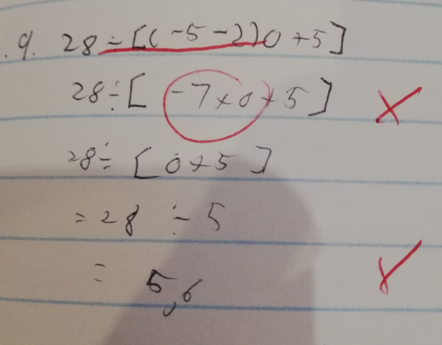 9. 28÷[(-5-2)0+5]
28÷[-7×0+5]
28÷[0+5]
=28÷5
=5,6